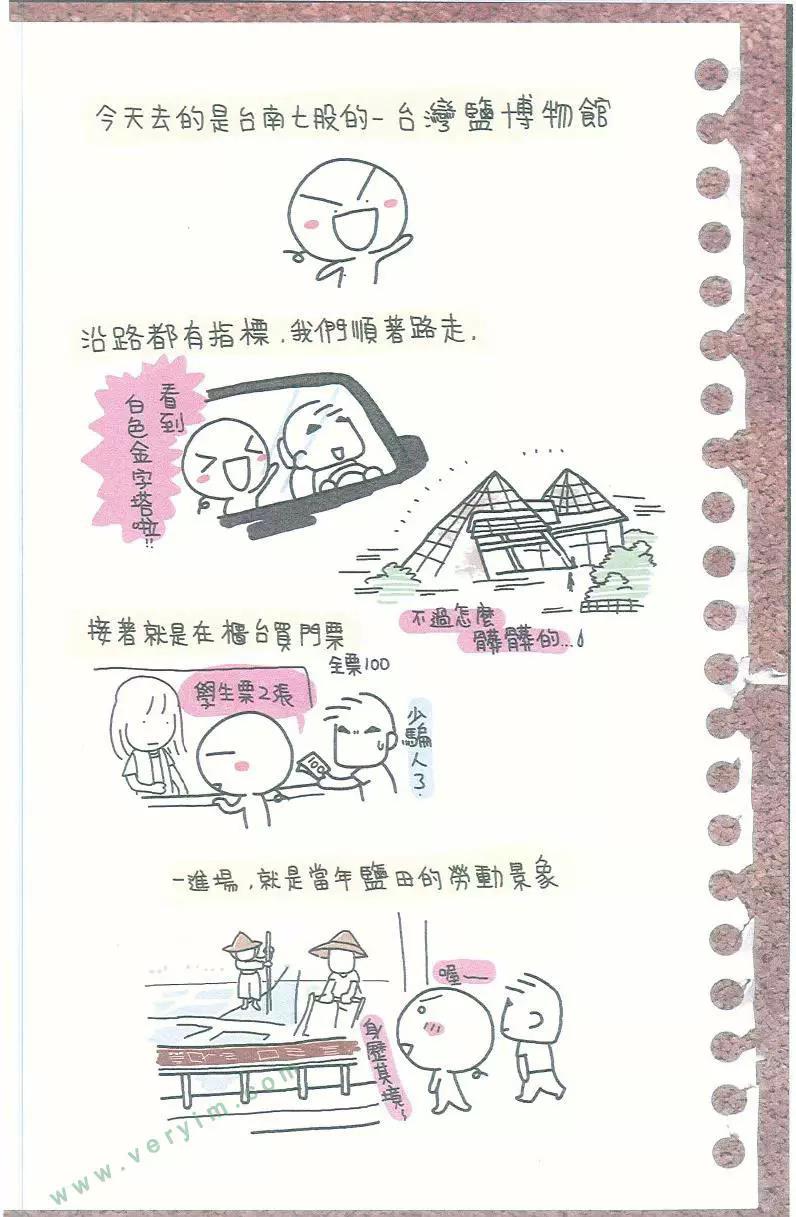 今天去的是台南七股的-台灣鹽博物館
沿路都有指標,我們順著路走.
看到
白色金字塔啦!!
不過怎麼
髒髒的...
接著就是在櫃台買門票
全票100
學生票2張
100
少騙人了.
一進場,就是當年鹽田的勞動景象
喔一
身歷其境
www.veryim.com